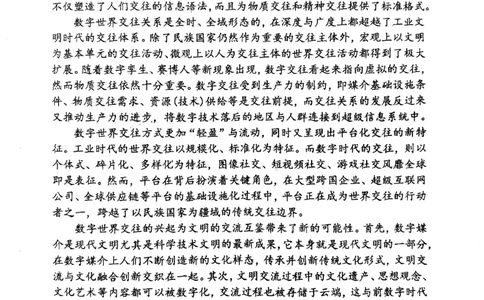 不仅塑造了人们交往的信息语法，而且为物质交往和精神交往提供了标准格式。
数字世界交往关系是全时、全域形态的，在深度与广度上都超越了工业文
明时代的交往体系。除了民族国家仍然作为重要的交往主体外，宏观上以文明
为基本单元的交往活动、微观上以人为交往主体的世界交往活动都得到了极大
扩展。随着数字孪生、赛博人等新现象出现，数字交往看起来指向虚拟的交往，
然而物质交往依然十分重要。数字交往受到生产力的制约，即媒介基础设施条
件、物质交往需求、资源（技术）供给等是交往前提，而交往关系的发展反过来
又推动生产力的进步，将数字技术落后的地区与人群连接到超级信息系统中。
数字世界交往方式更加“轻盈”与流动，同时又呈现出平台化交往的新特
征。工业时代的世界交往以规模化、标准化为特征。而数字时代的交往，则以
个体式、碎片化、多样化为特征，图像社交、短视频社交、游戏社交风靡全球
即是表征。然而，平台在背后扮演着关键角色，在大型跨国企业、超级互联网
公司、全球供应链等平台的基础设施化过程中，平台正在成为世界交往的行动
者之一，跨越了以民族国家为疆域的传统交往边界。
数字世界交往的兴起为文明的交流互鉴带来了新的可能性。首先，数字媒
介是现代文明尤其是科学技术文明的最新成果，它本身就是现代文明的一部分，
在数字媒介上人们不断创造新的文化样态，传承并创新传统文化形式，文明交
流与文化融合创新交织在一起。其次，文明交流过程中的文化遗产、思想观念、
文化艺术等内容都可以被数字化，交流过程也被存储于云端，这与前数字时代